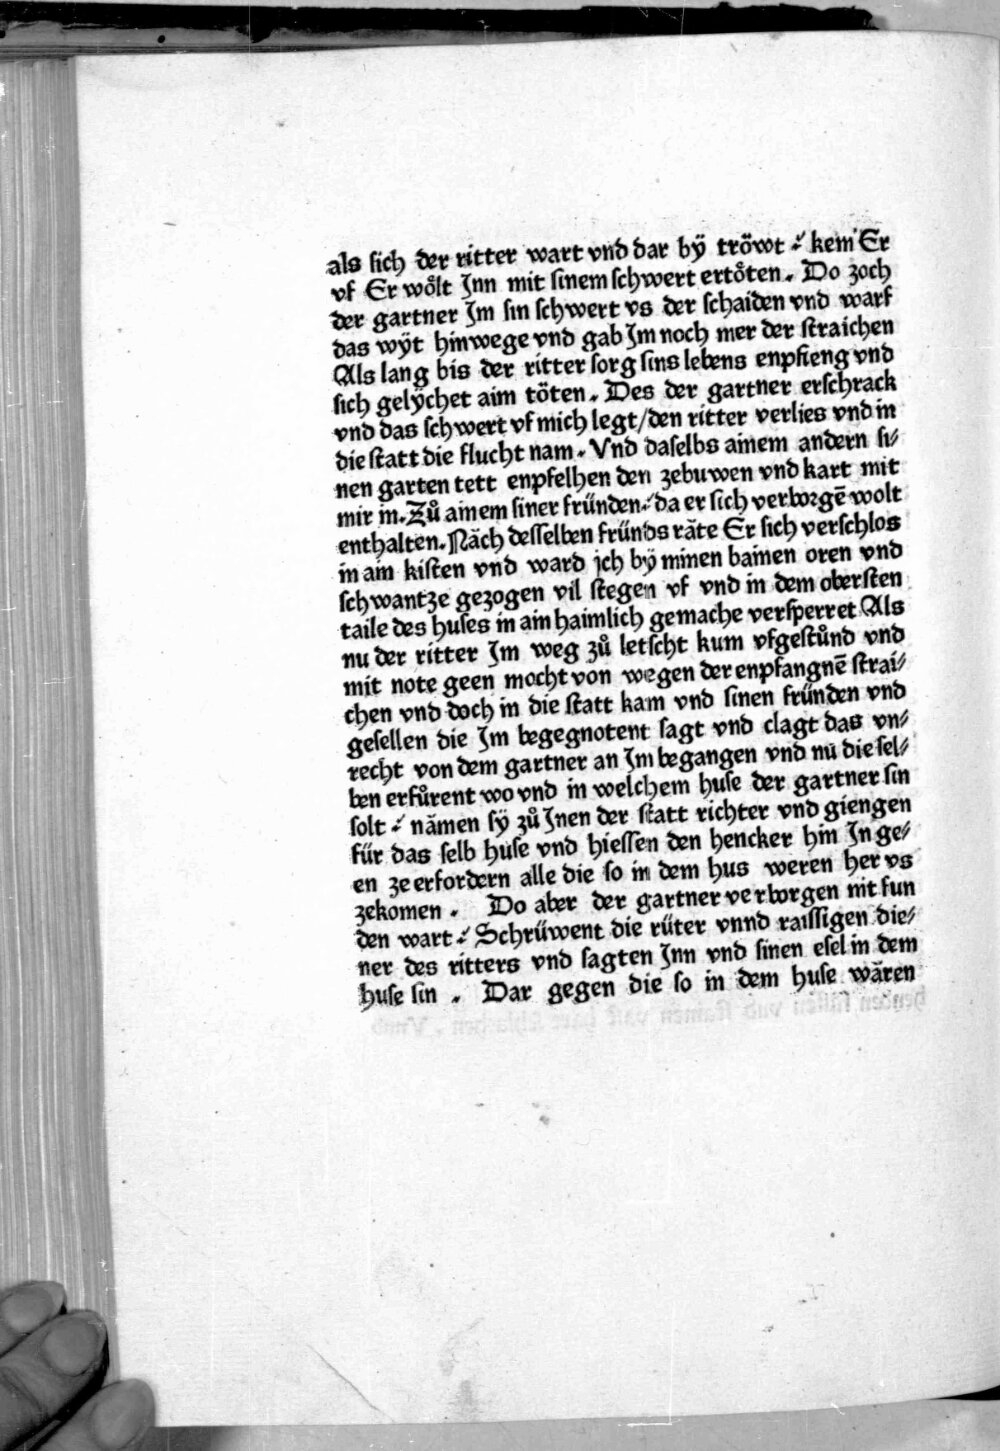 als ſich der ritter wart vnd dar bÿ tröwt ⸗ kem Er
vf Er wo̊lt Jnn mit ſinem ſchwert erto̊ten. Do zoch
der gartner Jm ſin ſchwert vs der ſchaiden vnd warf
das wÿt hinwege vnd gab Jm noch mer der ſtraichen
Als lang bis der ritter ſorg ſins lebens enpfieng vnd
ſich gelÿchet aim töten. Des der gartner erſchrack
vnd das ſchwert vf mich legt/den ritter verlies vnd in
die ſtatt die flucht nam. Vnd daſelbs ainem andern ſi⸗
nen garten tett enpfelhen den zebuwen vnd kart mit
mir in. Zů ainem ſiner fründen ⸗ da er ſich verborgē wolt
enthalten. Nāch deſſelben fründs rāte Er ſich verſchlos
in ain kiſten vnd ward ich bÿ minen bainen oren vnd
ſchwantze gezogen vil ſtegen vf vnd in dem oberſten
taile des huſes in ain haimlich gemache verſperret Als
nu der ritter Jm weg zů letſcht kum vfgeſtůnd vnd
mit note geen mocht von wegen der enpfangnē ſtrai⸗
chen vnd doch in die ſtatt kam vnd ſinen fründen vnd
geſellen die Jm begegnotent ſagt vnd clagt das vn⸗
recht von dem gartner an Jm begangen vnd nū die ſel⸗
ben erfůrent wo vnd in welchem huſe der gartner ſin
ſolt ⸗ nāmen ſÿ zů Jnen der ſtatt richter vnd giengen
für das ſelb huſe vnd hieſſen den hencker hin Jn ge⸗
en ze erfordern alle die ſo in dem hus weren her vs
zekomen. Do aber der gartner verborgen nit fun
den wart ⸗ Schrüwent die rüter vnnd raiſſigen die⸗
ner des ritters vnd ſagten Jnn vnd ſinen eſel in dem
huſe ſin. Dar gegen die ſo in dem huſe wāren